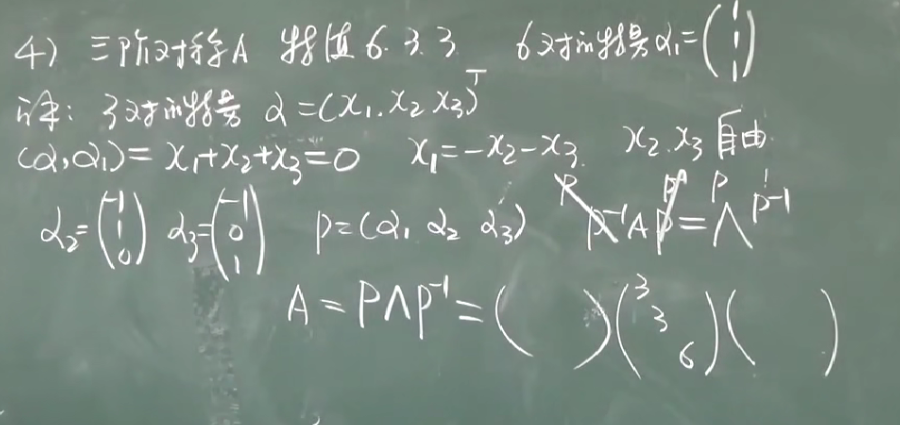 4) 三阶对称A 特值 6. 3. 3 6对应特量 α₁=(1 1 1)
设: 3对应特量 α=(x₁, x₂ x₃)ᵀ
(α,α₁)= x₁+x₂+x₃=0 x₁=-x₂-x₃. x₂. x₃ 自由.
α₂=(-1 1 0) α₃=(-1 0 1) P=(α₁ α₂ α₃) P⁻¹AP=PΛP⁻¹
A=PΛP⁻¹=( )(3 3 6)( )